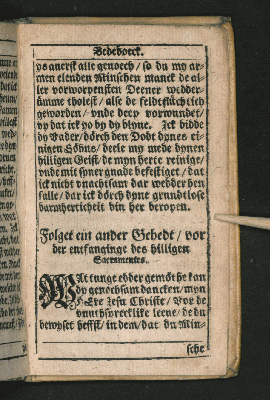 Bedeboeck.
ys auerst alle genoech / so du my ar-
men elenden Minschen manck de al-
ler vorworpensten Deener wedder-
ümme tholest / alse de feldtflüchtich
geworden / vnde deep vorwundet /
vp dat ick yo by dy blyue. Ick bidde
dy Vader / dörch den Dodt dynes ei-
nigen Söhns / deele my mede dynen
hilligen Geist / de myn herte reinige /
vnde mit syner gnade befestiget / dat
ick nicht vnachtsam dar wedder hen
falle / dar ick dörch dyne grundtlose
barmherticheit bin her beropen.
Folget ein ander Gebedt / vor
der entfanginge des hilligen
Sacramentes.
Wat tunge edder gemöthe kan
dy genochsam dancken / myn
HEre Jesu Christe / Vor de
vnuthsprecklike leeue / de du
bewyset heffst / in dem / dat du Min-
sche